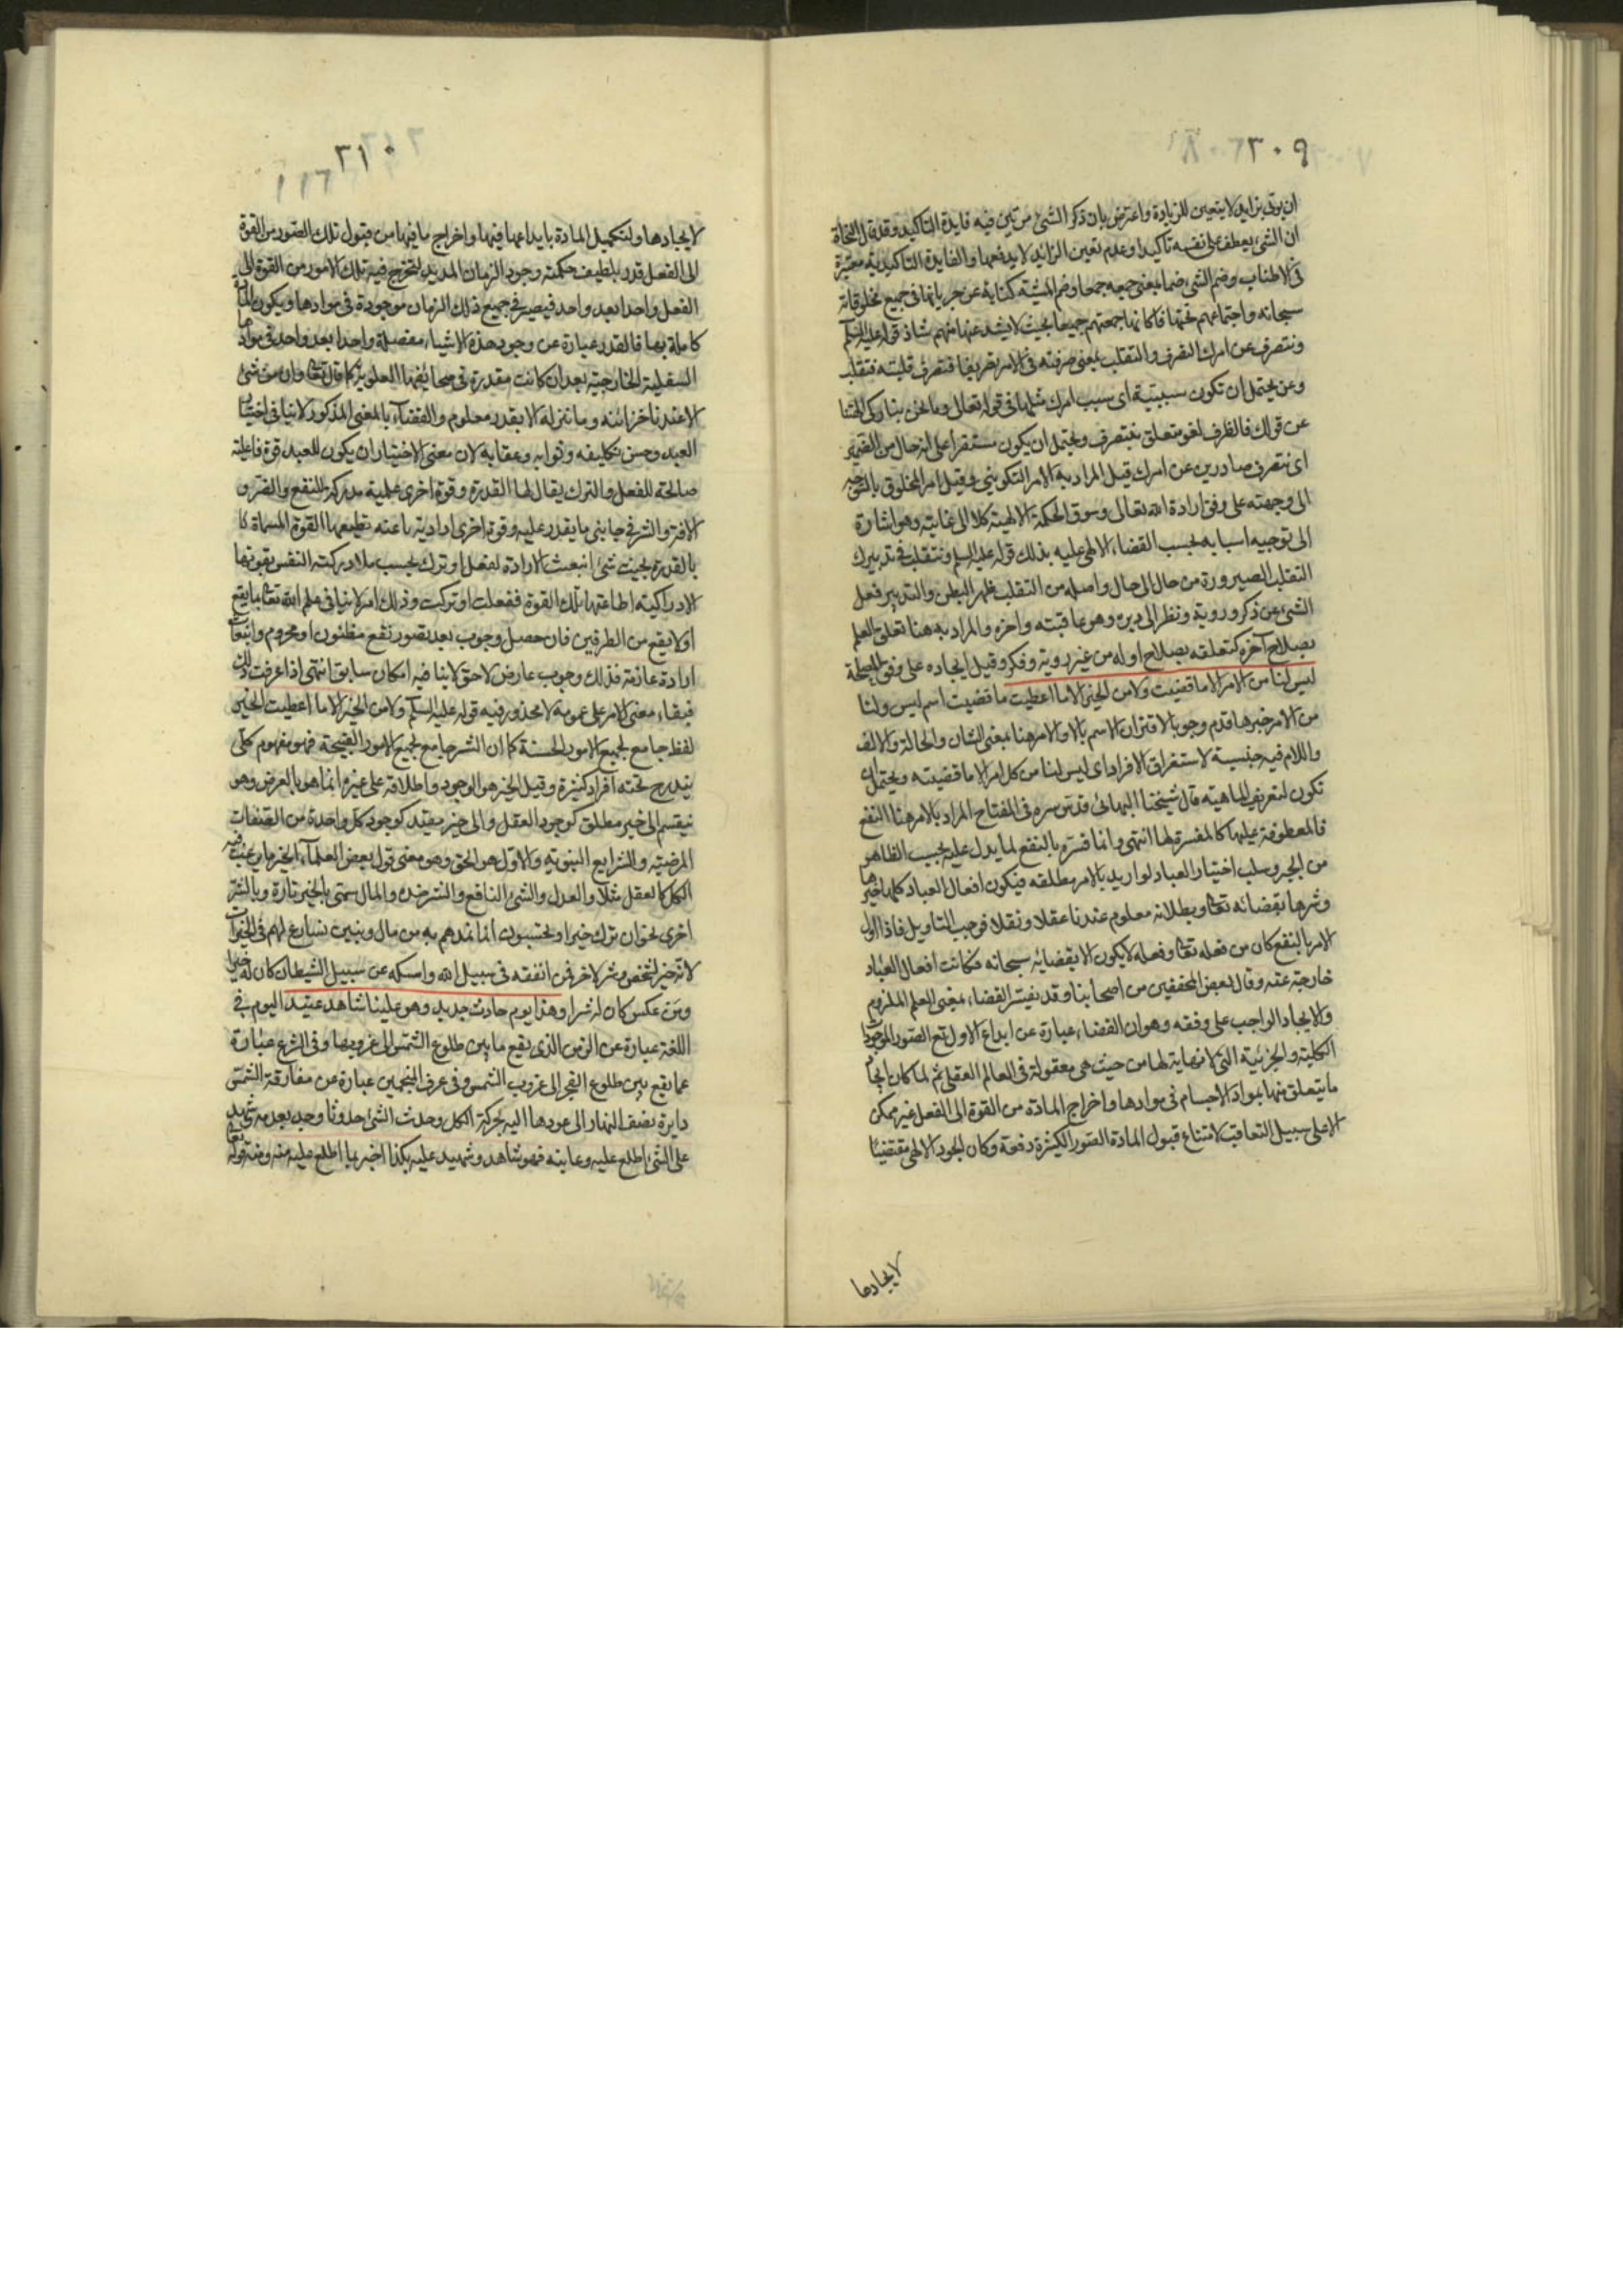 ٣٠٩
ان يؤتى بزايد لا يتعين للزيادة واعترض بان ذكر الشئ مرتين فيه فايدة التاكيد وقد قال النحاة
ان الشئ يعطف على نفسه تاكيدا وعدم تعين الزايد لا يدفعها والفايدة التاكيدية معتبرة
فى الاطناب وضم الشئ ضما بمعنى جمعه جمعا وضم المشية كناية عن جريانها فى جميع مخلوقاته
سبحانه واجتماعهم تحتها فكانها جمعتهم جميعا بحيث لا يشذ عنها منهم شاذ قوله عليه السلم
ونتصرف عن امرك التصرف والتقلب بمعنى صرفته فى الامر تصريفا فتصرف قلبته فتقلب
وعن يحتمل ان تكون سببية اى بسبب امرك مثلها فى قوله تعالى وما نحن بتاركى الهتنا
عن قولك فالظرف لغو متعلق بنتصرف ويحتمل ان يكون مستقرا على انه حال من الضمير
اى نتصرف صادرين عن امرك قيل المراد به الامر التكوينى وقيل امر المخلوق بالتوجه
الى وجهته على وفق ارادة الله تعالى وسوق الحكمة الالهية كلا الى غايته وهو اشارة
الى توجيه اسبابه بحسب القضاء الالهى عليه بذلك قوله عليه السلم ونتقلب فى تدبيرك
التقلب الصيرورة من حال الى حال واصله من التقلب ظهر البطن والتدبير فعل
الشئ عن ذكر وروية ونظر الى دبره وهو عاقبته واخره والمراد به هنا تعلق العلم
بصلاح آخره كتعلقه بصلاح اوله من غير روية وفكر وقيل ايجاده على وفق المصلحة
ليس لنا من الامر الا ما قضيت ولا من الخير الا ما اعطيت ما قضيت اسم ليس ولنا
من الامر خبرها قدم وجوبا لاقتران الاسم بالا والامر هنا بمعنى الشان والحالة والالف
واللام فيه جنسية لاستغراق الافراد اى ليس لنا من كل امر الا ما قضيته ويحتمل ان
تكون لتعريف الماهية قال شيخنا البهائى قدس سره فى المفتاح المراد بالامر هنا النفع
فالمعطوفة عليها كالمفسرة لها انتهى وانما فسره بالنفع لما يدل عليه بحسب الظاهر
من الجبر وسلب اختيار العباد لو اريد بالامر مطلقه فيكون افعال العباد كلها خيرها
وشرها بقضائه تعا وبطلانه معلوم عندنا عقلا ونقلا فوجب التاويل فاذا اول
الامر بالنفع كان من فعله تعا وفعله لا يكون الا بقضائه سبحانه فكانت افعال العباد
خارجة عنه وقال بعض المحققين من اصحابنا وقد يفسر القضاء بمعنى العلم الملزوم
والايجاد الواجب على وفقه وهو ان القضاء عبارة عن ابداع الاول تع الصور الموجودة
الكلية والجزئية التى لا نهاية لها من حيث هى معقولة فى العالم العقلى ثم لما كان ايجاد
ما يتعلق منها بمواد الاجسام فى موادها واخراج المادة من القوة الى الفعل غير ممكن
الا على سبيل التعاقب لامتناع قبول المادة الصور الكثيرة دفعة وكان الجود الالهى مقتضيا
لايجادها
٣١٠
لايجادها ولتكميل المادة بايداعها فيها واخراج ما فيها من قبول تلك الصور من القوة
الى الفعل قدر بلطيف حكمته وجود الزمان المديد لتخرج فيه تلك الامور من القوة الى
الفعل واحدا بعد واحد فيصير فى جميع ذلك الزمان موجودة فى موادها ويكون المادة
كاملة بها فالقدر عبارة عن وجود هذه الاشياء مفصلة واحدا بعد واحد فى موادها
السفلية الخارجية بعد ان كانت مقدرة فى صحايفها العلوية كما قال تعا وان من شئ
الا عندنا خزائنه وما ننزله الا بقدر معلوم والقضاء بالمعنى المذكور لا ينافى اختيار
العبد وحسن تكليفه وثوابه وعقابه لان معنى الاختيار ان يكون للعبد قوة فاعلة
صالحة للفعل والترك يقال لها القدرة وقوة اخرى علمية مدركة للنفع والضر و
الافة والشر فى جانبى ما يقدر عليه وقوة اخرى ارادية باعثة تطيعها القوة المسماة
بالقدرة بحيث متى انبعث الارادة لفعل او ترك بحسب ما ادركته النفس بقوتها
الادراكية اطاعتها تلك القوة ففعلت او تركت وذلك امر لا ينافى علم الله تعا بما يقع
او لا يقع من الطرفين فان حصل وجوب بعد تصور نفع مظنون او مجزوم وانبعاث
ارادة عازمة فذلك وجوب عارض لاحق لا ينافيه امكان سابق انتهى اذا عرفت ذلك
فبقاء معنى الامر على عمومه لا محذور فيه قوله عليه السلم ولا من الخير الا ما اعطيت الخير
لفظ جامع لجميع الامور الحسنة كما ان الشر جامع لجميع الامور القبيحة فهو مفهوم كلى
يندرج تحته افراد كثيرة وقيل الخير هو الوجود واطلاقه على غيره انما هو بالعرض وهو
ينقسم الى خير مطلق كوجود العقل والى خير مقيد كوجود كل واحدة من الصفات
المرضية والشرايع النبوية والاول هو الحق وهو معنى قول بعض العلماء الخير ما يرغب فيه
الكل كالعقل مثلا والعدل والشئ النافع والشر ضده والمال سمى بالخير تارة وبالشر
اخرى نحو ان ترك خيرا ويحسبون انما نمدهم به من مال وبنين نسارع لهم فى الخيرات
لانه خير لشخص وشر لاخر فمن انفقه فى سبيل الله وامسكه عن سبيل الشيطان كان له خيرا
ومن عكس كان له شرا وهذا يوم حادث جديد وهو علينا شاهد عتيد اليوم فى
اللغة عبارة عن الزمن الذى يقع ما بين طلوع الشمس الى غروبها وفى الشرع عبارة
عما يقع بين طلوع الفجر الى غروب الشمس وفى عرف المنجمين عبارة عن مفارقة الشمس
دايرة نصف النهار الى عودها اليه بحركة الكل وحدث الشئ حدوثا وجد بعد عدمه شهد
على الشئ اطلع عليه وعاينه فهو شاهد وشهيد عليه بكذا اخبر بما اطلع عليه منه ومنه قوله تعا